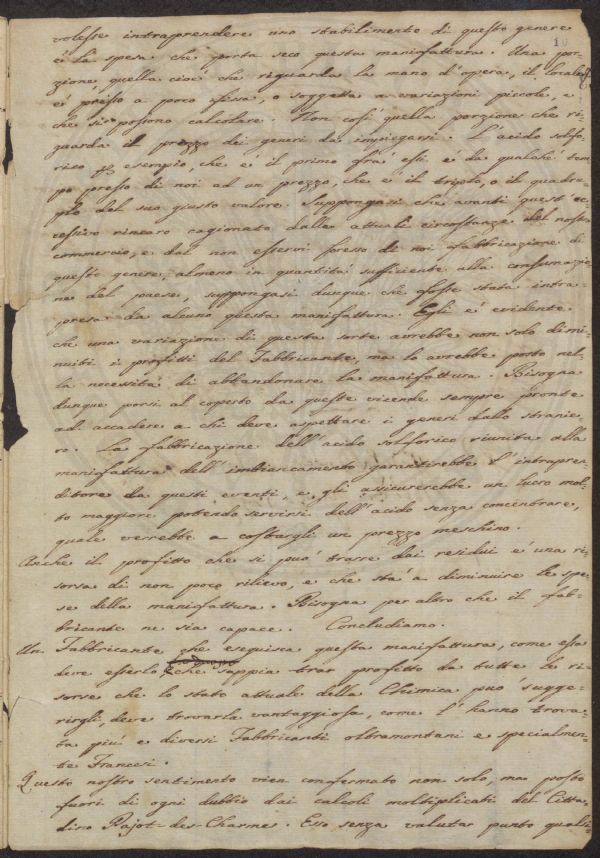 10
volesse intraprendere uno stabilimento di questo genere
è la spesa che porta seco questa manifattura. Una por-
zione, quella cioè che riguarda la mano d'opera, il locale &
è presso a poco fissa, o soggetta a variazioni piccole, e
che si possono calcolare. Non così quella porzione che ri-
guarda il prezzo dei generi da impiegarsi. L'acido solfo-
rico p. esempio, che è il primo fra essi è da qualche tem
po presso di noi ad un prezzo, che è il triplo, o il quadru-
plo del suo giusto valore. Suppongasi che avanti quest'ec-
cessivo rincaro cagionato dalle attuali circostanze del nostro
commercio, e dal non esservi presso di noi fabbricazione di
questo genere, almeno in quantità sufficiente alla consumazio-
ne del paese, suppongasi dunque che fosse stata intra-
presa da alcuno questa manifattura. Egli è evidente
che una variazione di questa sorte avrebbe non solo dimi-
nuiti i profitti del Fabbricante, ma lo avrebbe posto nel-
la necessità di abbandonare la manifattura. Bisogna
dunque porsi al coperto da queste vicende sempre pronte
ad accadere a chi deve aspettare i generi dallo stranie
ro. La fabbricazione dell'acido solforico riunita alla
manifattura dell'imbiancamento garantirebbe l'intrapren-
ditore da questi eventi, e gli assicurerebbe un lucro mol-
to maggiore potendo servirsi dell'acido senza concentrare,
quale verrebbe a costargli un prezzo meschino.
Anche il profitto che si può trarre dai residui è una ri-
sorsa di non poco rilievo, e che sta a diminuire le spe-
se della manifattura. Bisogna per altro che il fab-
bricante ne sia capace. Concludiamo.
Un Fabbricante che eseguisca questa manifattura, come essa
deve esserlo e che sappia trar profitto da tutte le ri-
sorse che lo stato attuale della Chimica può sugge-
rirgli, deve trovarla vantaggiosa, come l'hanno trova-
ta più e diversi Fabbricanti oltramontani e specialmen-
te Francesi.
Questo nostro sentimento vien confermato non solo, ma posto
fuori di ogni dubbio dai calcoli moltiplicati del Citta-
dino Pajot-des-Charmes. Esso senza valutar punto quals